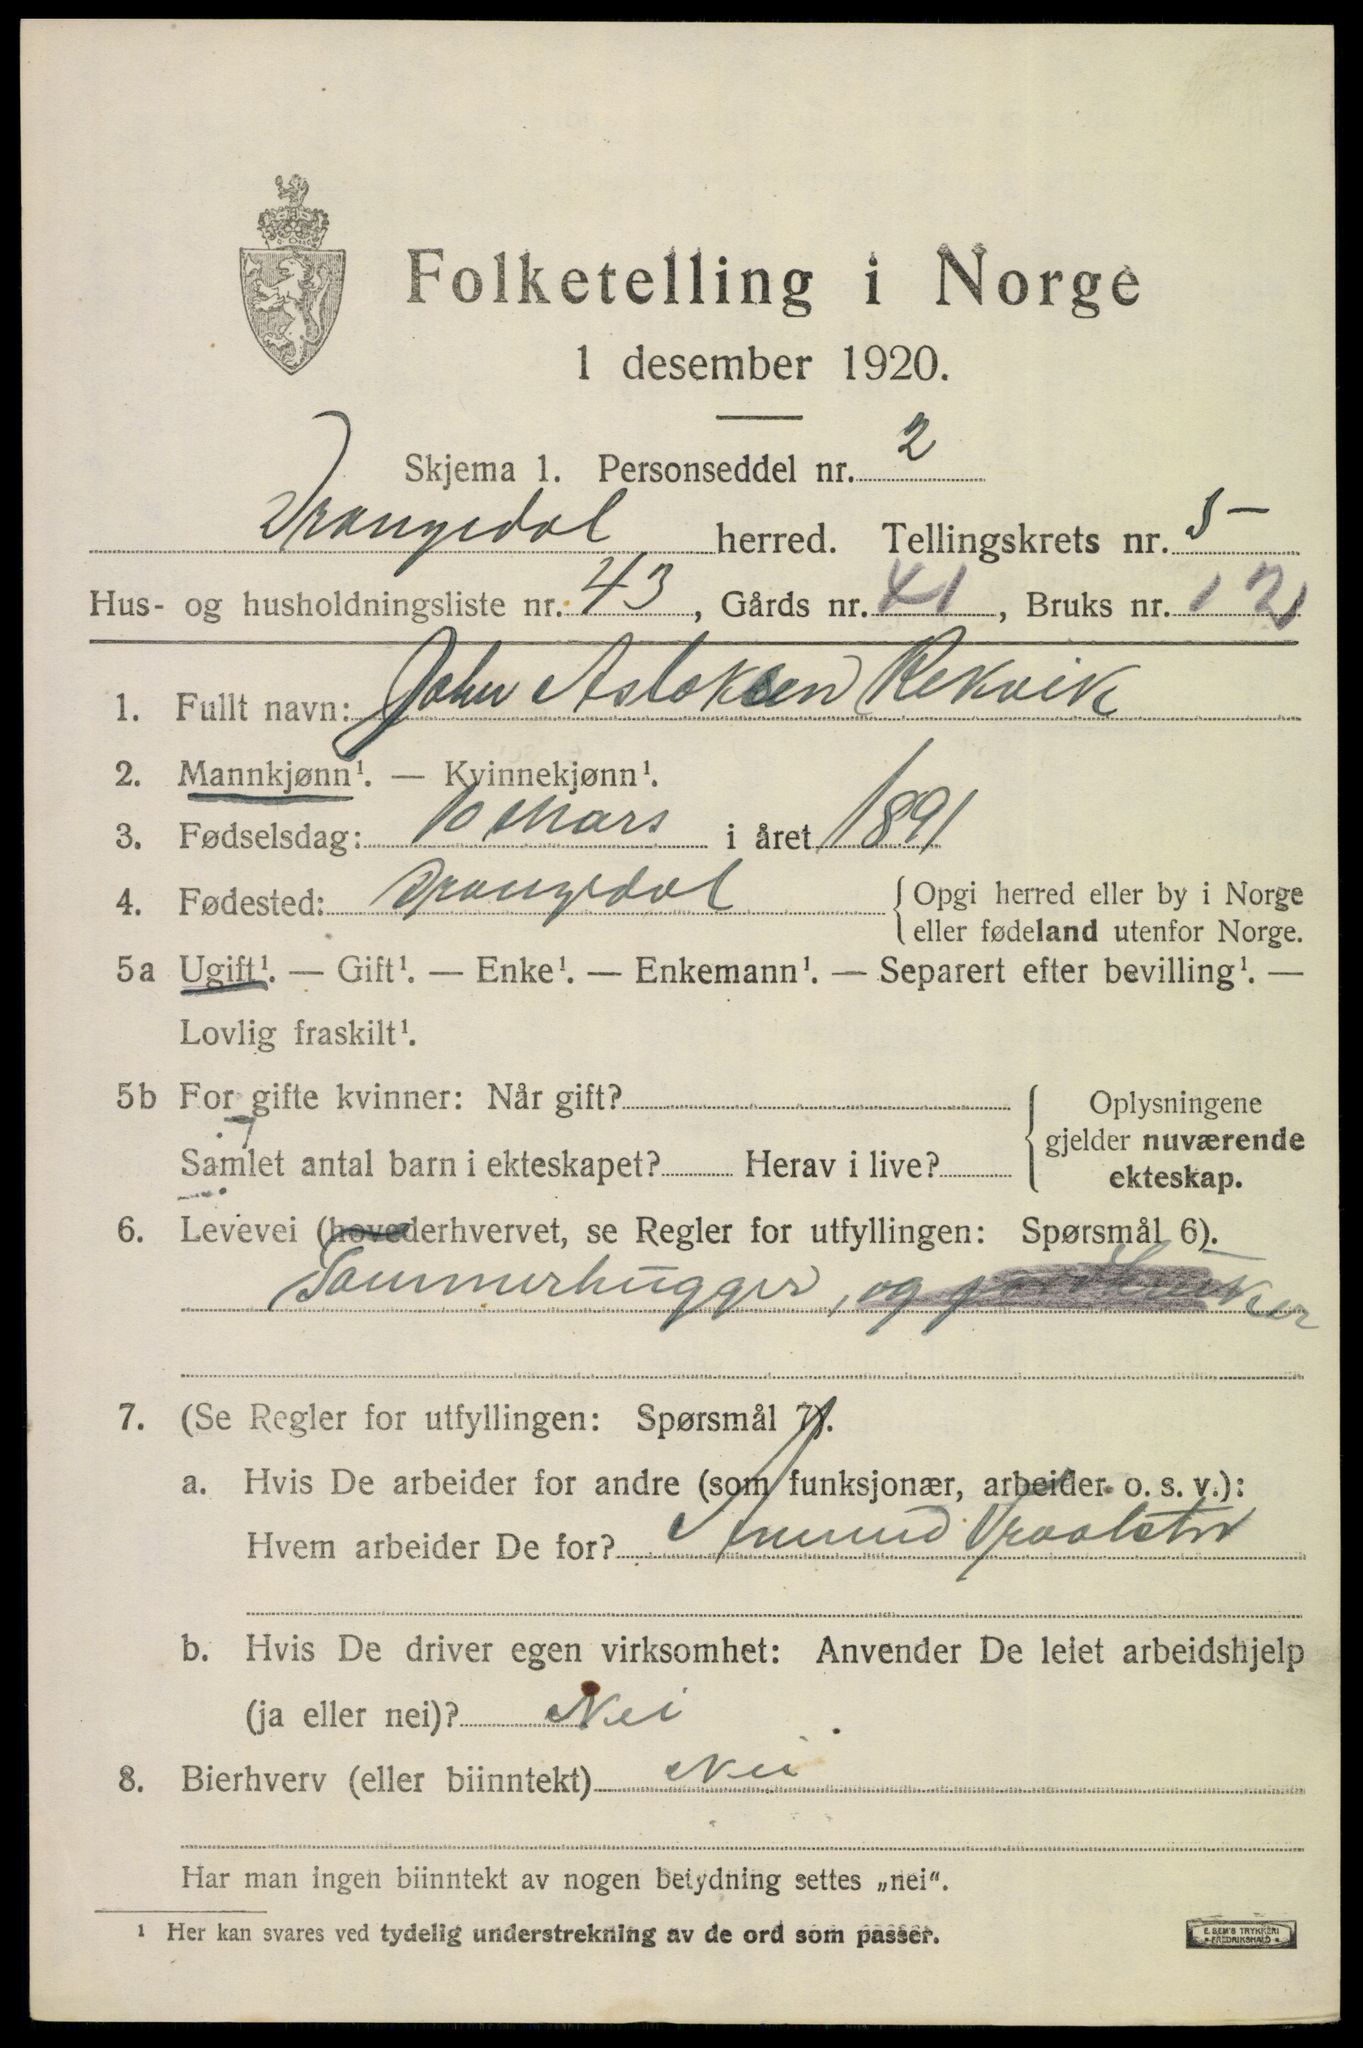 Folketelling i Norge
1 desember 1920.
Skjema 1. Personseddel nr. 2
Drangedal herred. Tellingskrets nr. 5
Hus- og husholdningsliste nr. 43, Gårds nr. 41, Bruks nr. 12
1. Fullt navn: John Aslaksen Rekvik
2. Mannkjønn¹. — Kvinnekjønn¹.
3. Fødselsdag: 10 Mars i året 1891
4. Fødested: Drangedal { Opgi herred eller by i Norge
eller fødeland utenfor Norge.
5a Ugift¹. — Gift¹. — Enke¹. — Enkemann¹. — Separert efter bevilling¹. —
Lovlig fraskilt¹.
5b For gifte kvinner: Når gift? { Oplysningene
gjelder nuværende
Samlet antal barn i ekteskapet? Herav i live?
ekteskap.
6. Levevei (hovederhvervet, se Regler for utfyllingen: Spørsmål 6).
Tømmerhugger, og gårdbruker
7. (Se Regler for utfyllingen: Spørsmål 7).
a. Hvis De arbeider for andre (som funksjonær, arbeider o. s. v.):
Hvem arbeider De for? Amund
b. Hvis De driver egen virksomhet: Anvender De leiet arbeidshjelp
(ja eller nei)? Nei
8. Bierhverv (eller biinntekt) Nei
Har man ingen biinntekt av nogen betydning settes „nei".
¹ Her kan svares ved tydelig understrekning av de ord som passer.
E. SEM'S TRYKKERI
FREDRIKSHALD